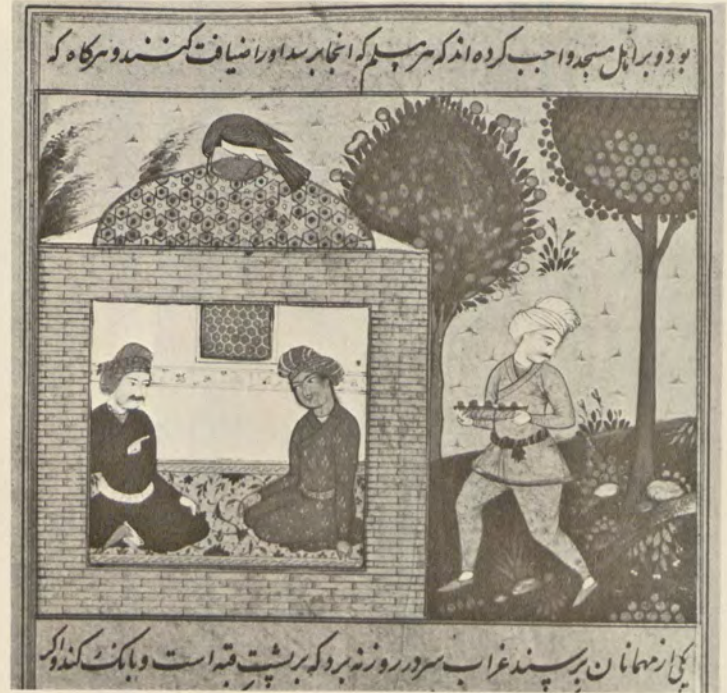 بود و بر اهل مسجد واجب کرده اند که هر مسلم که انجا برسد او را ضیافت کنند و هر کاه که
یکی از مهمانان برسند غراب سر در روزنه برد که بر پشت قبه است و بانک کند و اکر